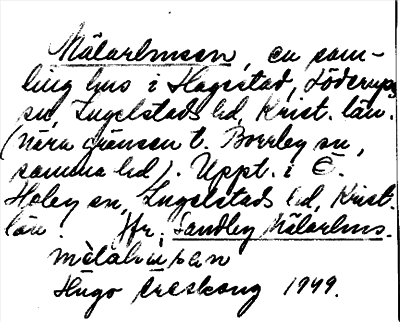 Målarhusen, en sam-
ling hus i Hagestad, Löderups
sn, Ingelstads hd, Krist. län.
(nära gränsen t. Borrby sn,
samma hd). Uppt. i Ö.
Hoby sn, Ingelstads hd, Krist.
län. Jfr. Sandby Målarhus.
Hugo Areskoug 1949.